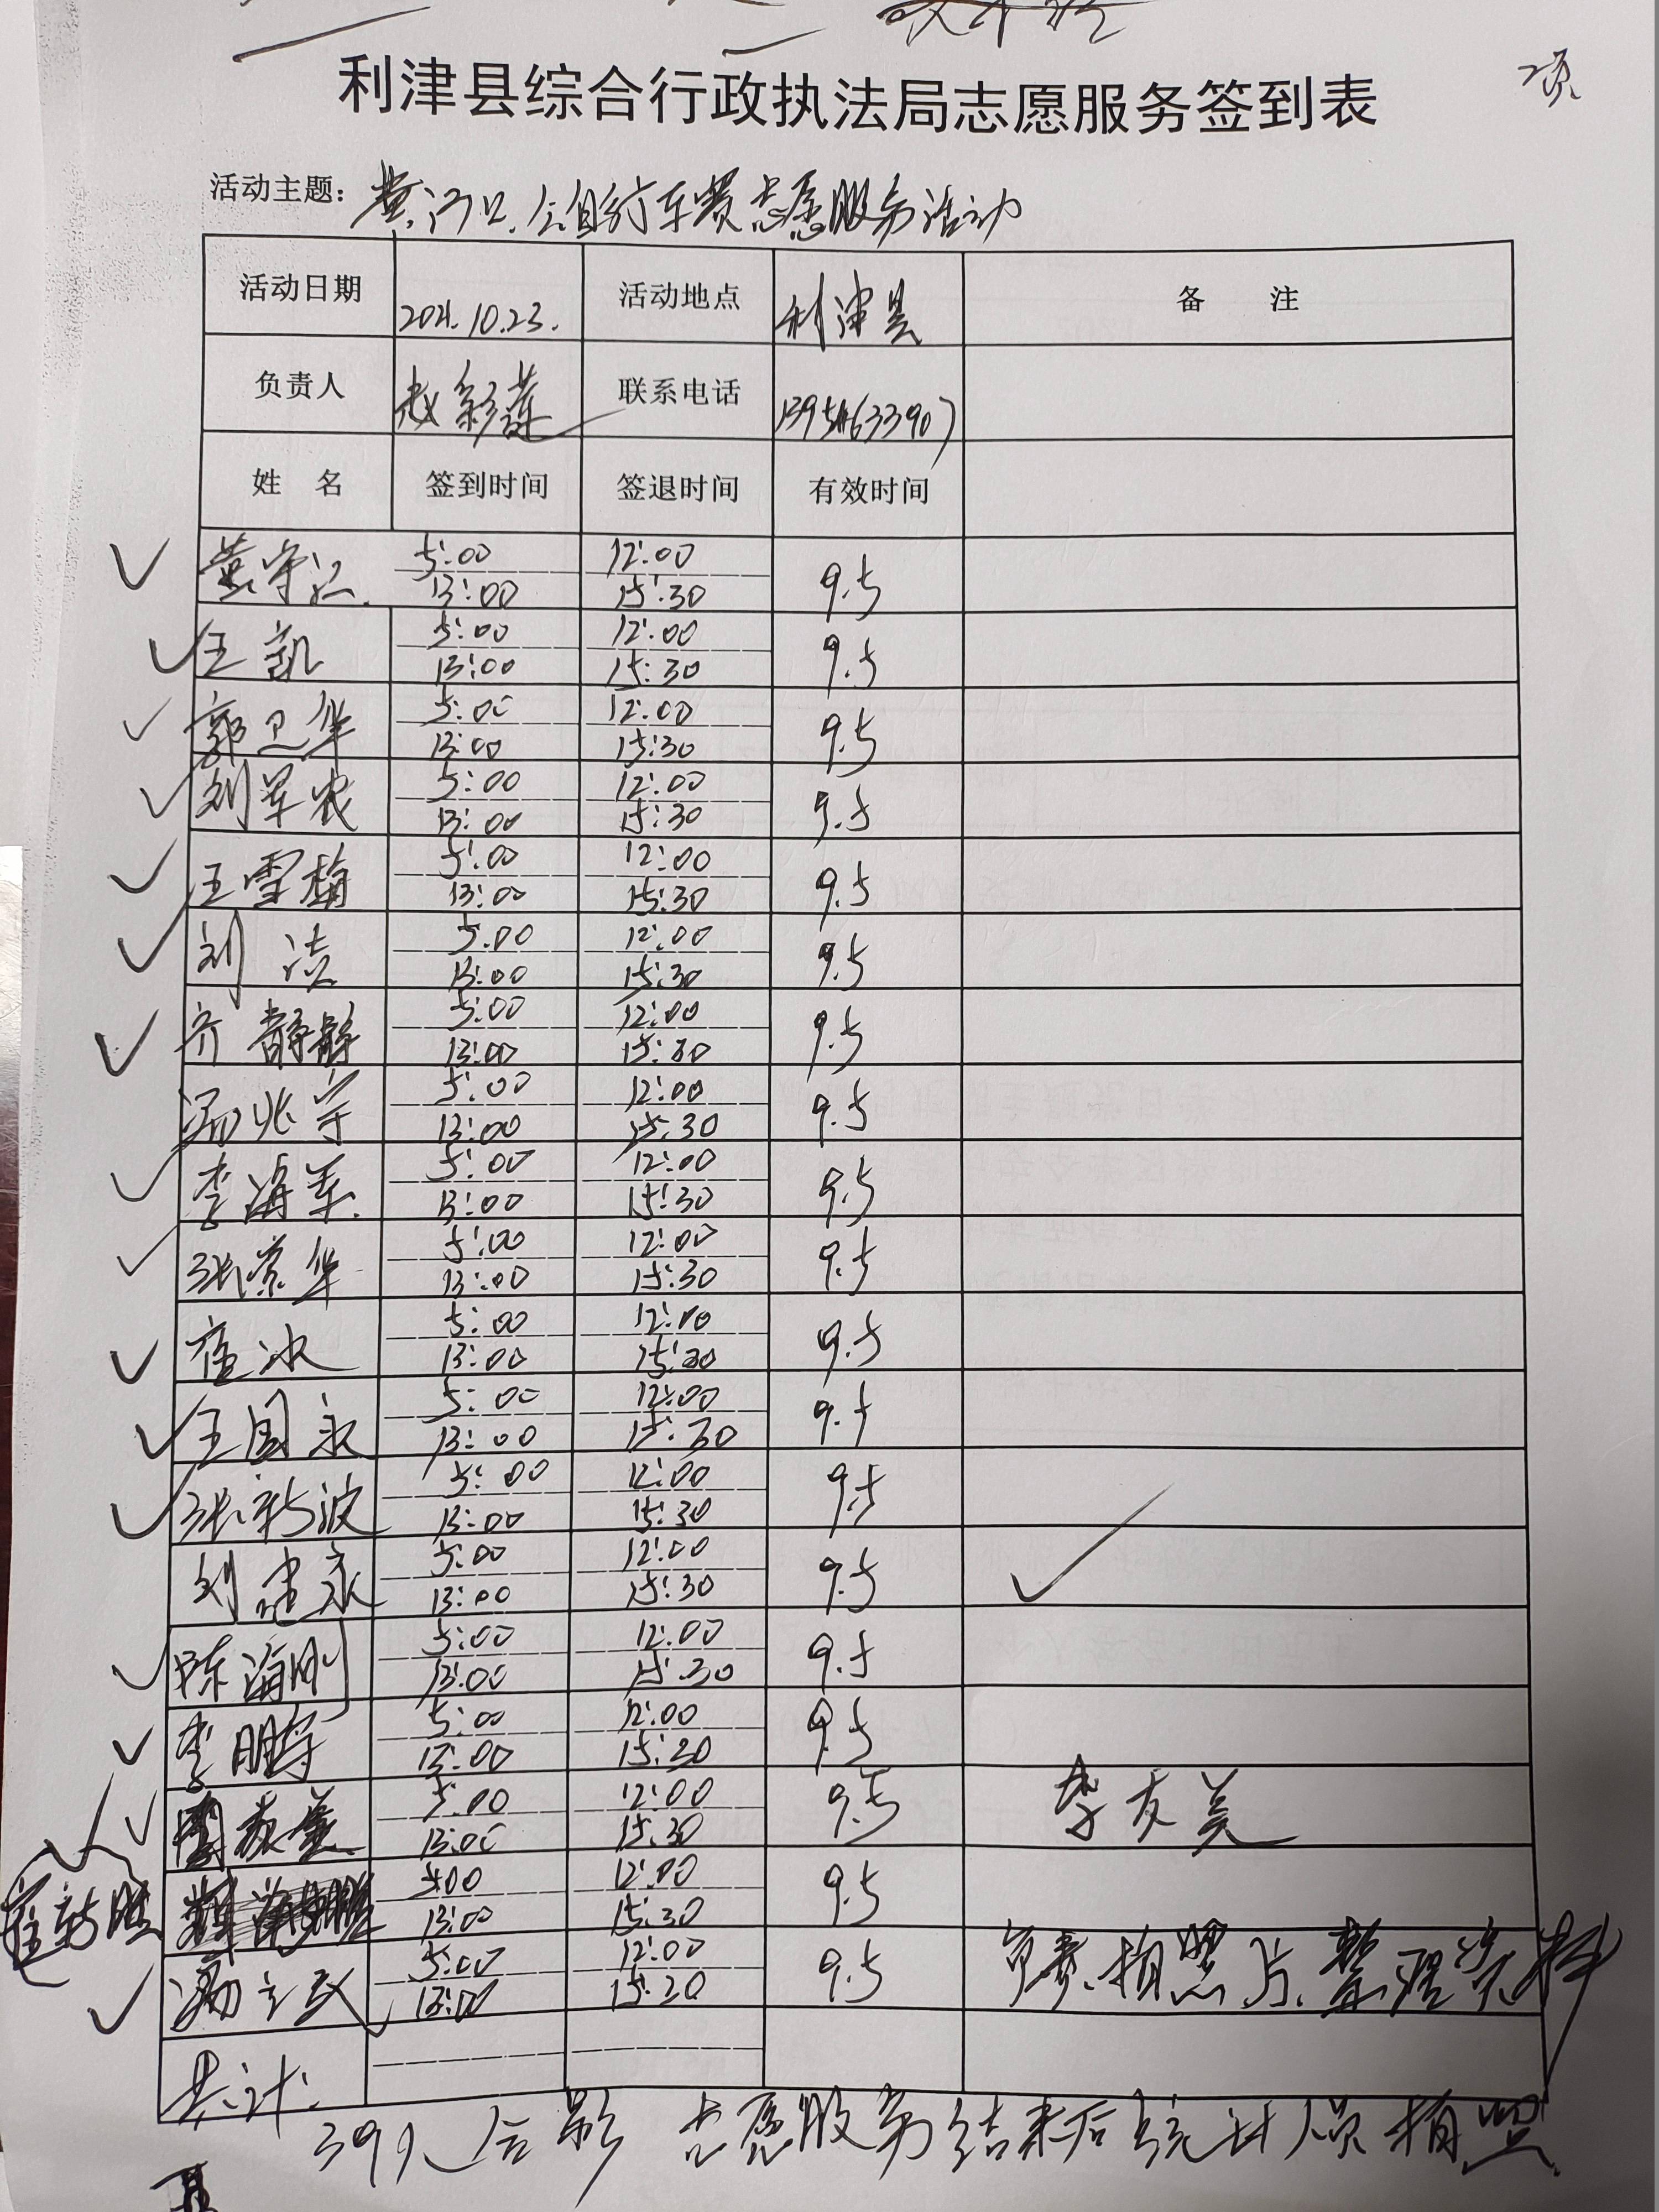 利津县综合行政执法局志愿服务签到表
活动主题: 黄河口公自行车赛志愿服务活动
活动日期 2021.10.23. 活动地点 利津县 备 注
负责人 赵彩莲 联系电话
姓 名 签到时间 签退时间 有效时间
黄守江 5:00 12:00 9.5
13:00 15:30
王凯 5:00 12:00 9.5
13:00 15:30
郭卫华 5:00 12:00 9.5
13:00 15:30
刘军农 5:00 12:00 9.5
13:00 15:30
王雪梅 5:00 12:00 9.5
13:00 15:30
刘洁 5:00 12:00 9.5
13:00 15:30
齐静静 5:00 12:00 9.5
13:00 15:30
汤兆宇 5:00 12:00 9.5
13:00 15:30
李海军 5:00 12:00 9.5
13:00 15:30
张崇华 5:00 12:00 9.5
13:00 15:30
崔冰 5:00 12:00 9.5
13:00 15:30
王国永 5:00 12:00 9.5
13:00 15:30
张新波 5:00 12:00 9.5
13:00 15:30
刘建永 5:00 12:00 9.5
13:00 15:30
陈海刚 5:00 12:00 9.5
13:00 15:30
李鹏宇 5:00 12:00 9.5
13:00 15:30
5:00 12:00 9.5 李友美
13:00 15:30
崔新胜 5:00 12:00 9.5
13:00 15:30
5:00 12:00 9.5 负责拍照片、整理资料
13:00 15:30
共计:
39人合影 志愿服务结束后统计人员拍照